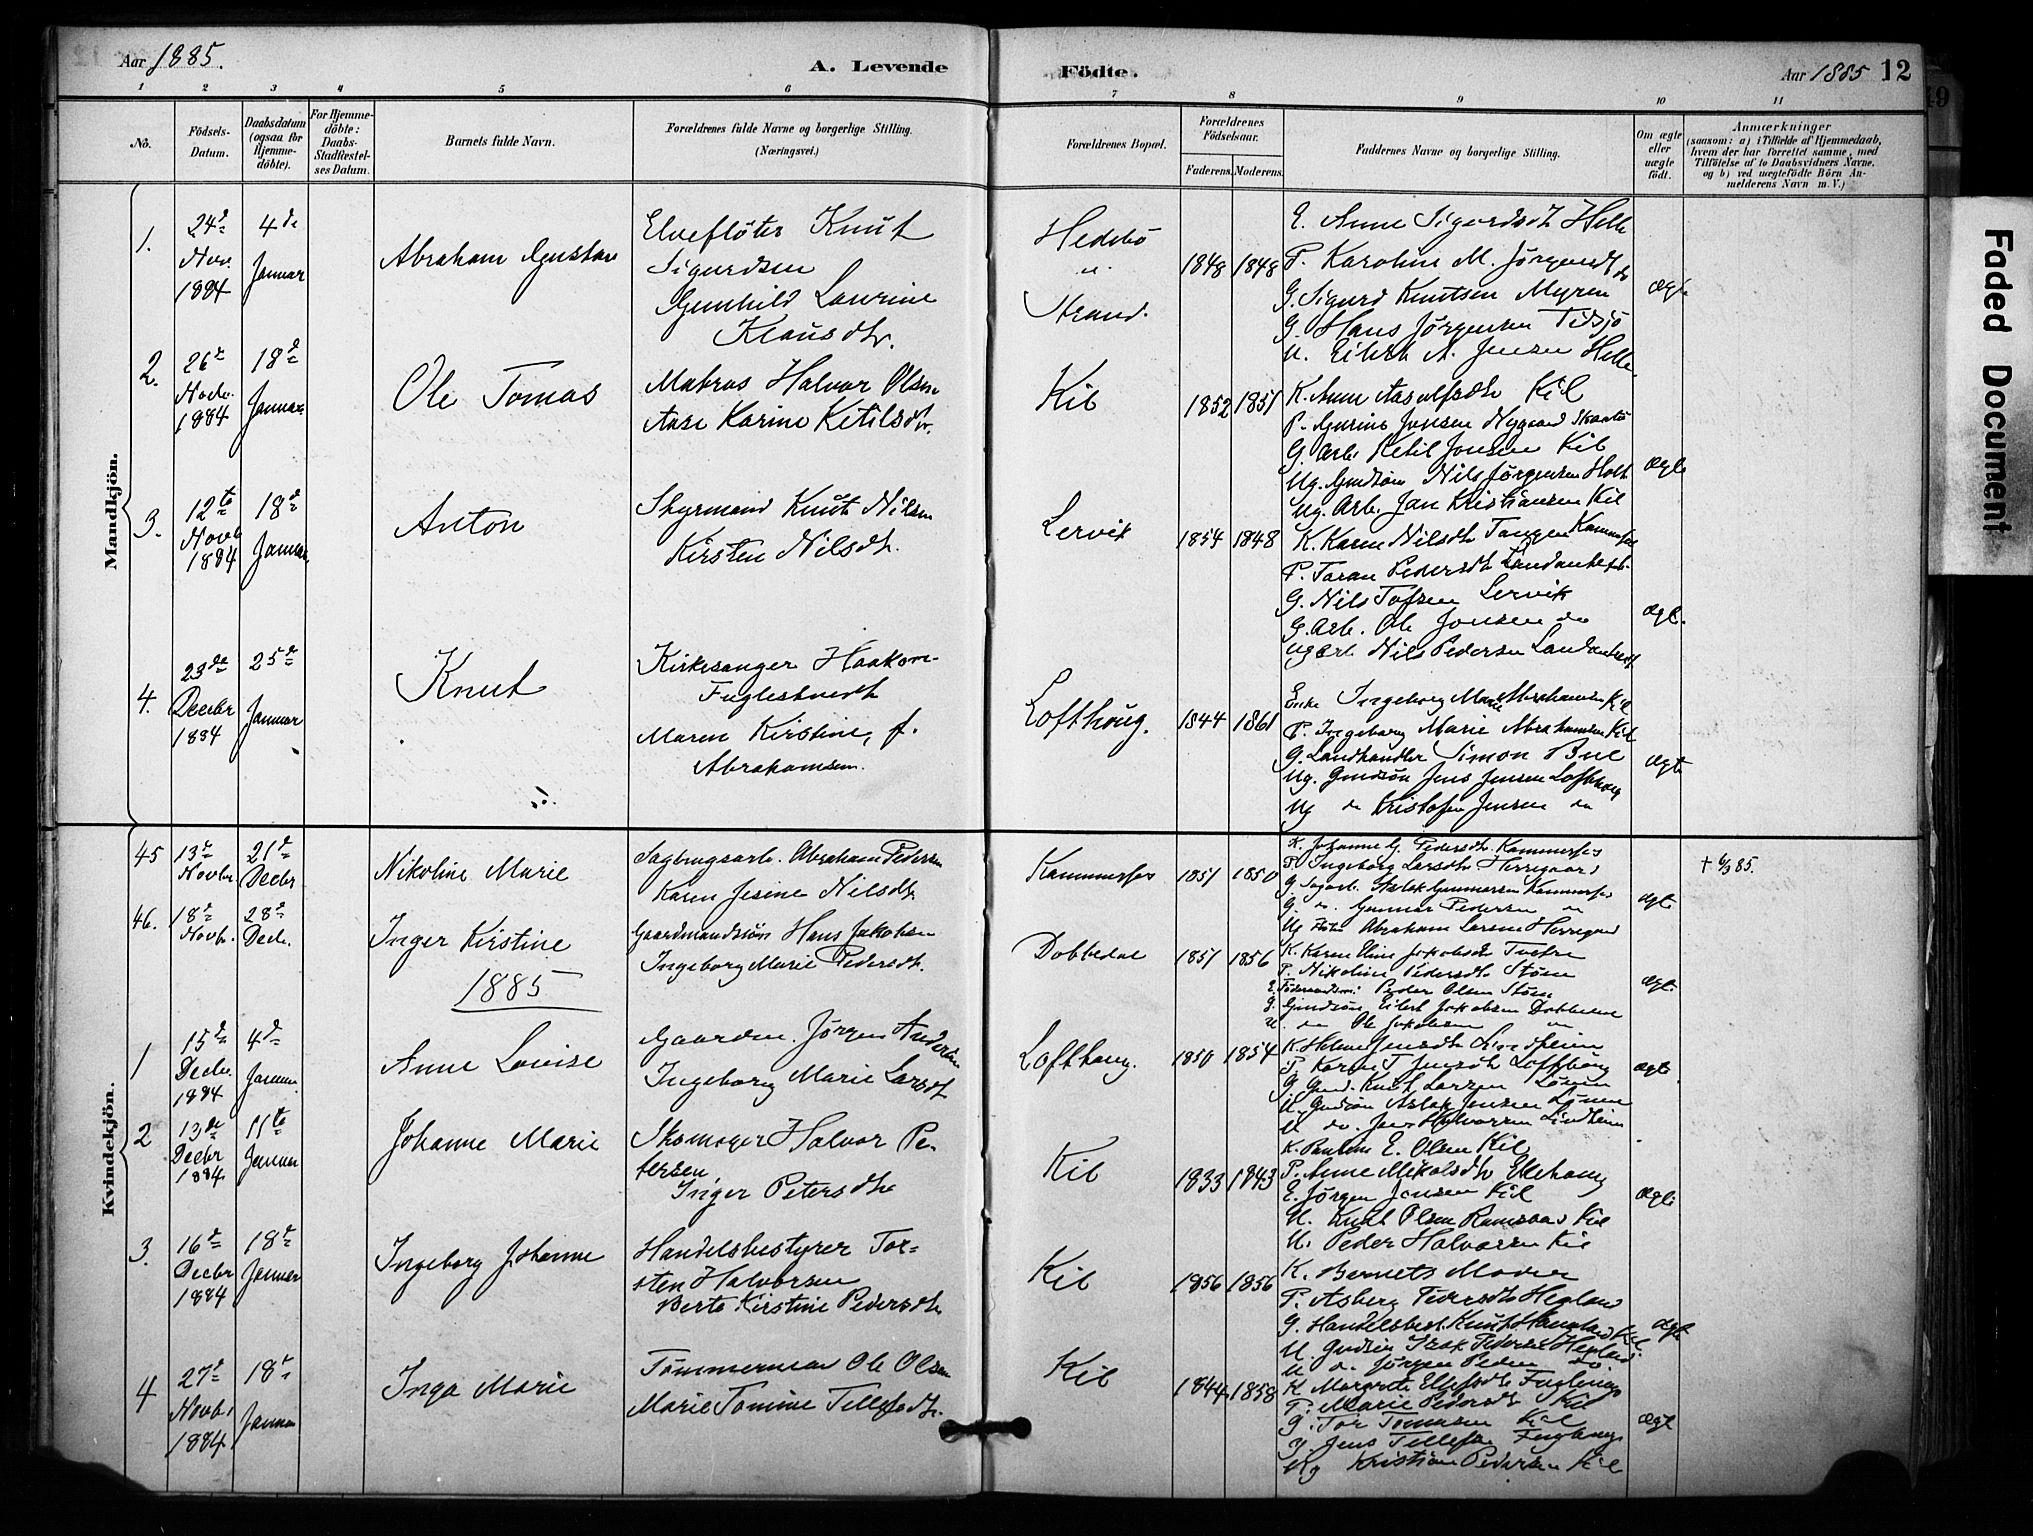 Aar 1885.
A. Levende
Födte.
Aar 1885 12
1 2 3 4 5 6 7 8 9 10 11
No.
Födsels-
Datum.
Daabsdatum
(ogsaa for
Hjemme-
döbte).
For Hjemme-
döbte:
Daabs-
Stadfæstel-
ses Datum.
Barnets fulde Navn.
Forældrenes fulde Navne og borgerlige Stilling.
(Næringsvei.)
Forældrenes Bopæl.
Forældrenes
Födselsaar.
Faderens.
Moderens.
Faddernes Navne og borgerlige Stilling.
Om ægte
eller
uægte
födt.
Anmærkninger
(saasom: a) i Tilfælde af Hjemmedaab,
hvem der har forrettet samme, med
Tilföielse af to Daabsvidners Navne,
og b) ved uægtefödte Börn An-
melderens Navn m. V.)
Mandkjön.
1.
24d
Nov.
1884
4de
Januar
Abraham Gustav
Elvefløter Knut
Sigurdsen
Gunhild Laurine
Klausdtr.
Hedebö
u.
Strand.
1848 1848
E. Anne Sigurdsdt Helle
P. Karoline M. Jørgensdt do
G. Sigurd Knutsen Myren
G. Hans Jørgensen Tidsjø
U. Eilert A. Jensen Helle
Ægt.
2.
26d
Novbr.
1884
18d
Januar
Ole Tomas
Matros Halvor Olsen
Aase Karine Ketilsdtr.
Kil
1852 1851
K. Anne Aasulfsdtr Kil
P. Gurine Jensen Nygaard Skaatö
G. Arb. Ketil Jonsen Kil
Ug. Gmdsøn Nils Jørgensen Holt
Ug. Arb. Jan Kristiansen Kil
Ægte
3.
12te
Novb
1884
18d
Januar
Anton
Styrmand Knut Nilsen
Kirsten Nilsdtr.
Lervik
1854 1848
K. Karen Nilsdtr Tangen Kammerfos
P. Taran Pedersdtr
G. Nils Tofsen Lervik
G. Arb. Ole Jonsen do
Ug Arb. Nils Pedersen
ægt.
4.
23de
Decbr
1884
25d
Januar
Knut
Kirkesanger Haakon
Fuglestvedt
Maren Kirstine, f.
Abrahamsen.
Lofthoug.
1844 1861
Enke Ingeborg Marie Abrahamsen Kil
P. Ingeborg Marie Abrahamsen Kil
G. Landhandler Simon Bue
Ug. Gmdsøn Jens Jensen Lofthoug
Ug do Kristofer Jensen do
ægt.
Kvindekjön.
45
13d
Novbr.
21d
Decbr
Nikoline Marie
Sagbrugsarb. Abraham Pedersen
Karen Jesine Nilsdtr.
Kammerfos
1851 1850
K. Johanne G. Pedersdtr. Kammerfos
P. Ingeborg Larsdtr Herregaard
G. Sagarb. Aslak Gunnarsen Kammerfos
G. do. Gunnar Pedersen do
Ug. Abraham Larsen Herregaard
ægt.
† 6/3 85.
46.
18d
Novbr.
28d
Decb.
Inger Kirstine
Gaardmandssøn Hans Jakobsen
Ingeborg Marie Pedersdtr.
Dobbedal
1851 1856
K. Karen Eline Jakobsdtr
P. Nikoline Pedersdtr Støen
E. Föderaadsm. Peder Olsen Støen
G. Gmdsøn Eilert Jakobsen Dobbedal
U. do Ole Jakobsen do
ægt.
1885
1
15d
Decbr.
1884
4d
Januar
Anne Lovise
Gaardm. Jørgen Andersen
Ingeborg Marie Larsdt
Lofthoug.
1850 1854
K. Helene Jensdtr Lindheim
P. Karen T. Jensdt Lofthoug
G. Gmd. Knut Larsen Løsen
U. Gmdsøn Aslak Jensen
U do. Jens Halvorsen Lindheim
ægt.
2
13de
Decbr
1884
11te
Januar
Johanne Marie
Skomager Halvor Pe-
tersen
Inger Petersdtr
Kil
1833 1843
K. Pauline E. Olsen Kil
P. Anne Mikalsdtr Ellehaug
E. Jørgen Jensen Kil
U. Knut Olsen Kil
U. Peder Halvorsen Kil
ægt.
3.
16d
Decbr
1884
18d
Januar
Ingeborg Johanne
Handelsbestyrer Tor-
sten Halvorsen
Berte Kirstine Pedersdtr
Kil
1856 1856
K. Barnets Moder
P. Asberg Pedersdtr Hegland
G. Handelsbest. Knut Kil
U. Gmdsøn Isak Pedersen Hegland
U. d. Jørgen Peders. do.
ægt
4
27d
Novb.
1884
18d
Januar
Inga Marie
Tømmermand Ole Olsen
Marie Tomine Tellefsdtr.
Kil
1844 1858
K. Margrete Ellefsdtr
P. Marie Pedersdt Kil
G. Tor Tomasen Kil
Y. Jens Tellefsen
Ug Kristian Pedersen Kil
Ægt
Faded Document